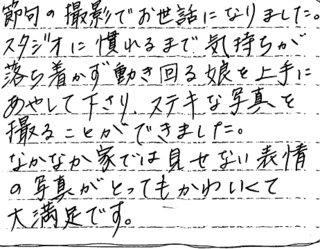 節句の撮影でお世話になりました。
スタジオに慣れるまで気持ちが
落ち着かず動き回る娘を上手に
あやして下さり、ステキな写真を
撮ることができました。
なかなか家では見せない表情
の写真がとってもかわいくて
大満足です。